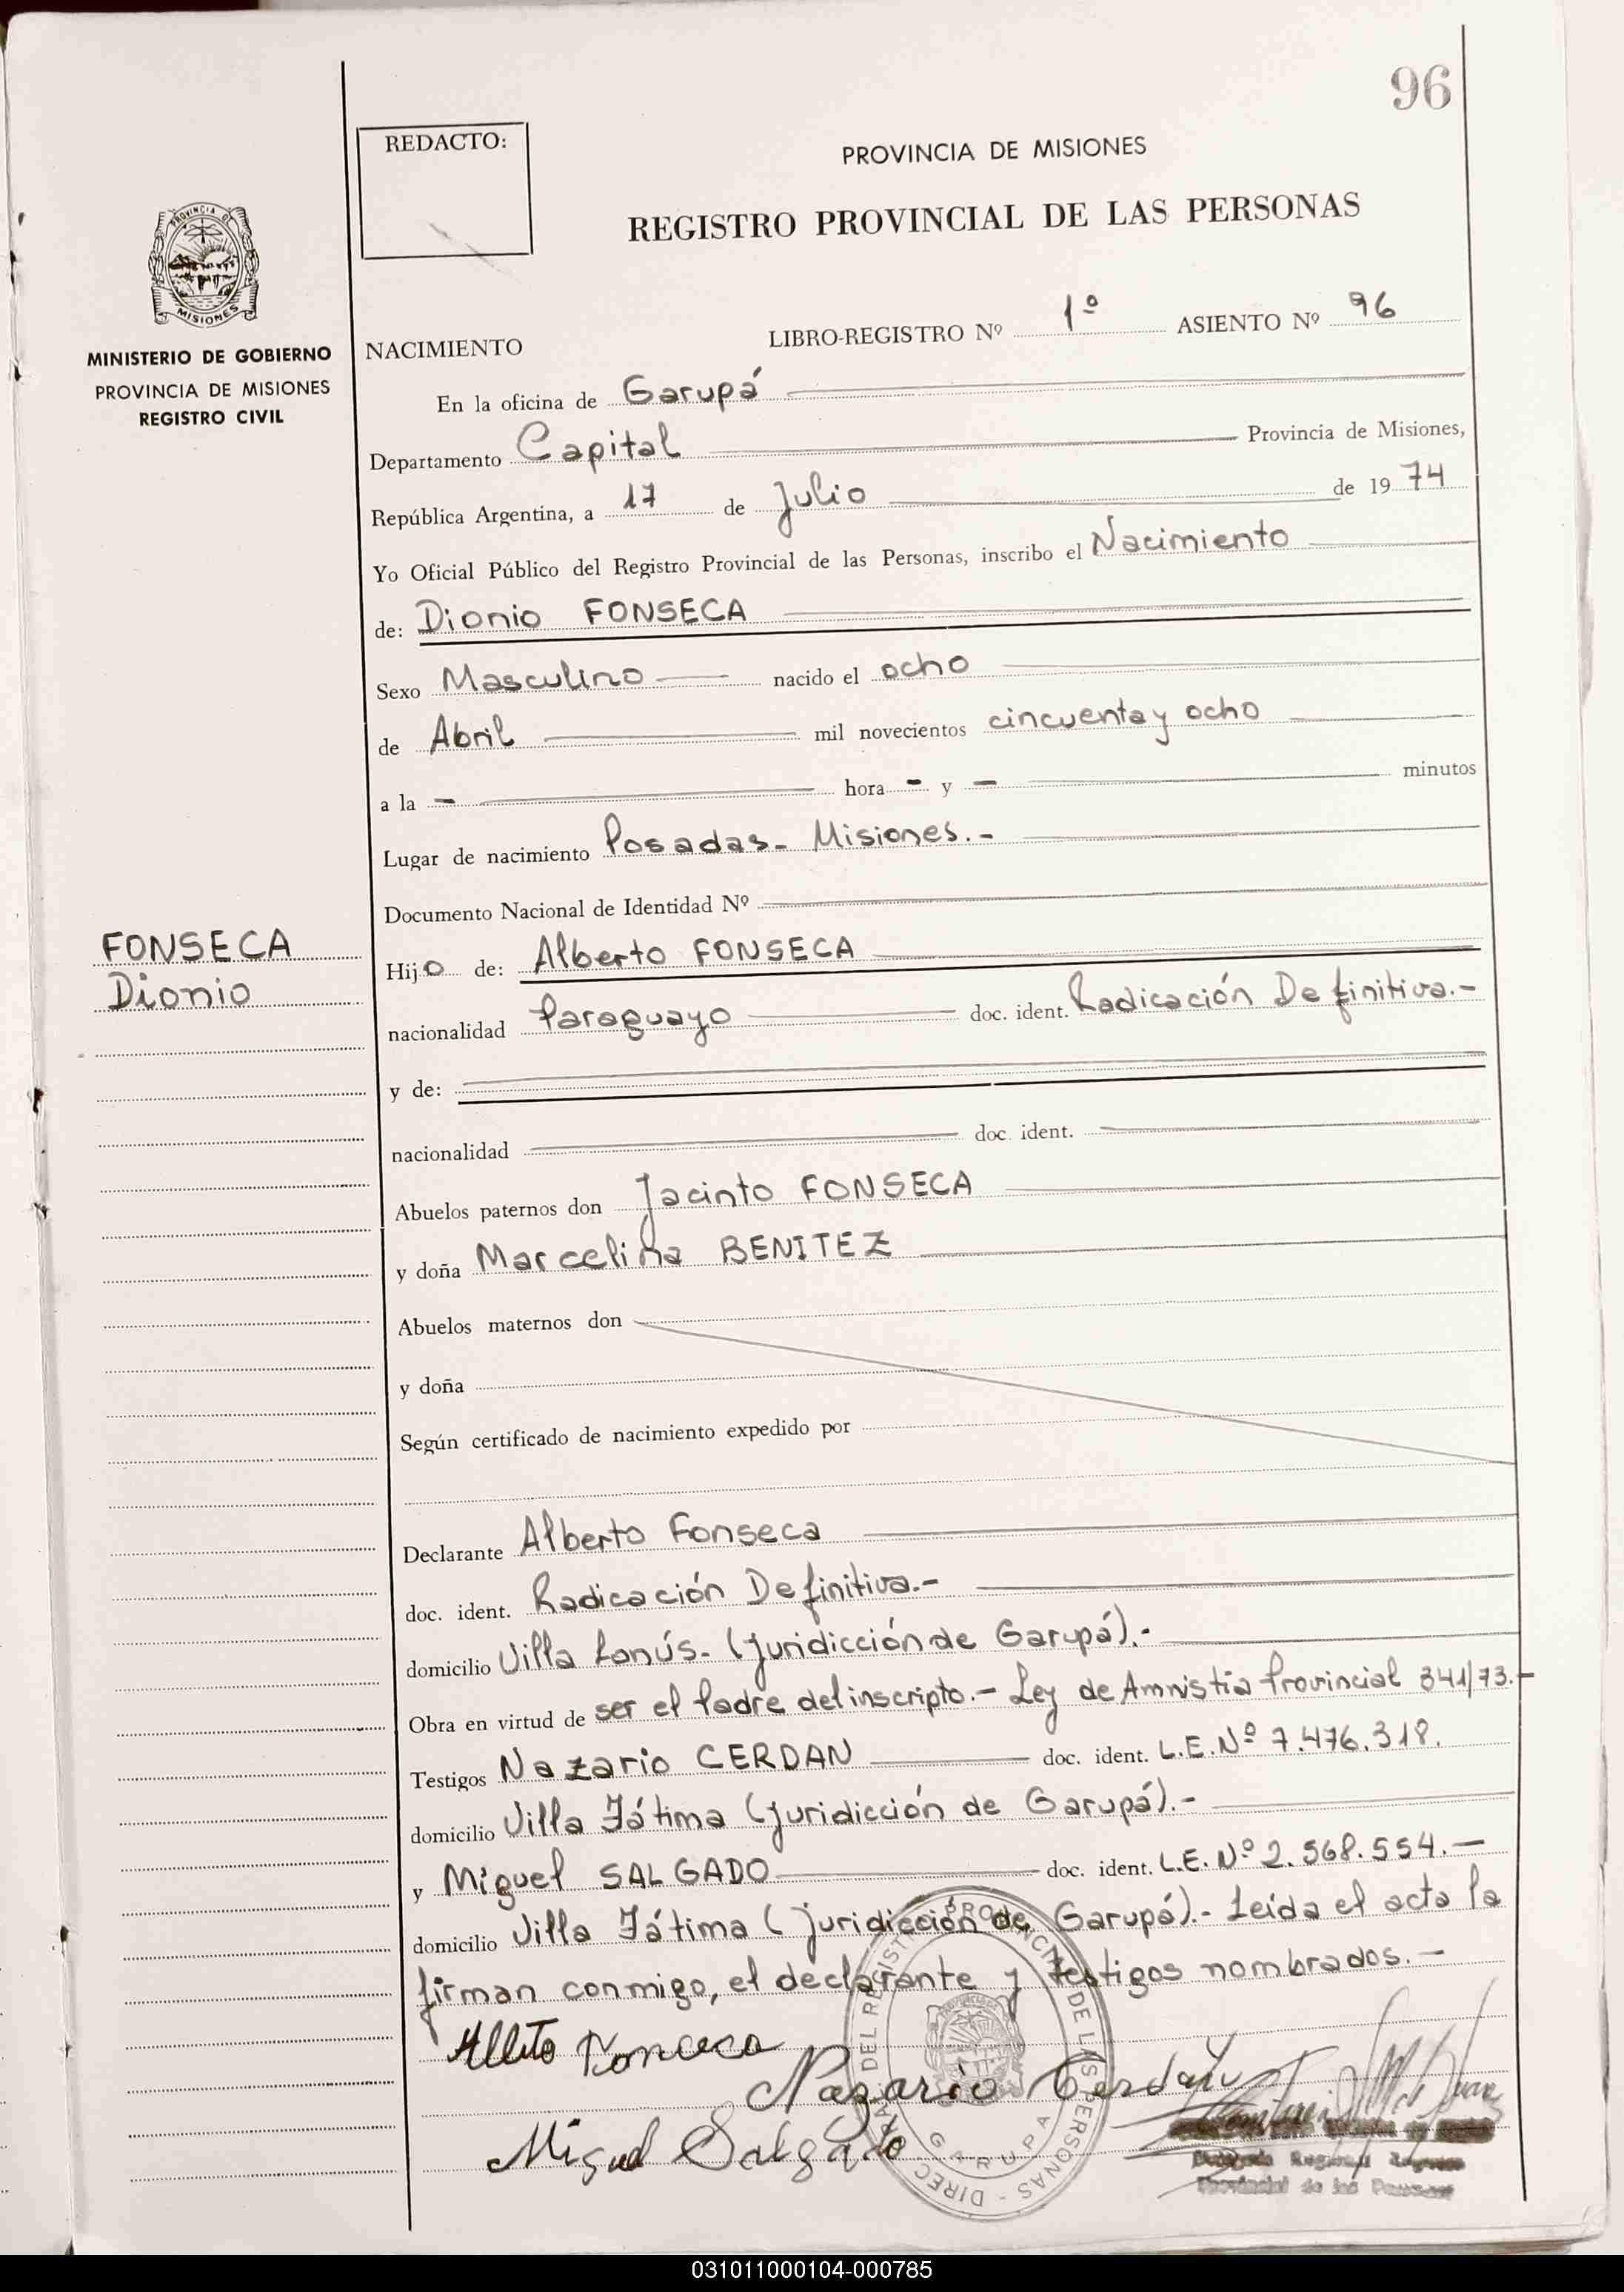 96
REDACTO:
PROVINCIA DE MISIONES
REGISTRO PROVINCIAL DE LAS PERSONAS
PROVINCIA DE
MISIONES
MINISTERIO DE GOBIERNO
PROVINCIA DE MISIONES
REGISTRO CIVIL
NACIMIENTO LIBRO-REGISTRO Nº 1º ASIENTO Nº 96
En la oficina de Garupá
Departamento Capital Provincia de Misiones,
República Argentina, a 17 de Julio de 1974
Yo Oficial Público del Registro Provincial de las Personas, inscribo el Nacimiento
de: Dionio FONSECA
Sexo Masculino nacido el ocho
de Abril mil novecientos cincuenta y ocho
a la - hora - y - minutos
Lugar de nacimiento Posadas - Misiones.-
Documento Nacional de Identidad Nº
FONSECA
Dionio
Hijo de: Alberto FONSECA
nacionalidad Paraguayo doc. ident. Radicación Definitiva.-
y de:
nacionalidad doc. ident.
Abuelos paternos don Jacinto FONSECA
y doña Marcelina BENITEZ
Abuelos maternos don
y doña
Según certificado de nacimiento expedido por
Declarante Alberto Fonseca
doc. ident. Radicación Definitiva.-
domicilio Villa Lanús - (juridicción de Garupá).-
Obra en virtud de ser el Padre del inscripto.- Ley de Amnistia Provincial 341/73.-
Testigos Nazario CERDAN doc. ident. L.E. Nº 7.476.318.
domicilio Villa Fátima (juridicción de Garupá).-
y Miguel SALGADO doc. ident. L.E. Nº 2.568.554.-
domicilio Villa Fátima (juridicción de Garupá).- Leída el acta la
firman conmigo, el declarante y testigos nombrados.-
Alberto Fonseca
Nazario Cerdan
Miguel Salgado
GARUPA
Provincial de las Personas
031011000104-000785